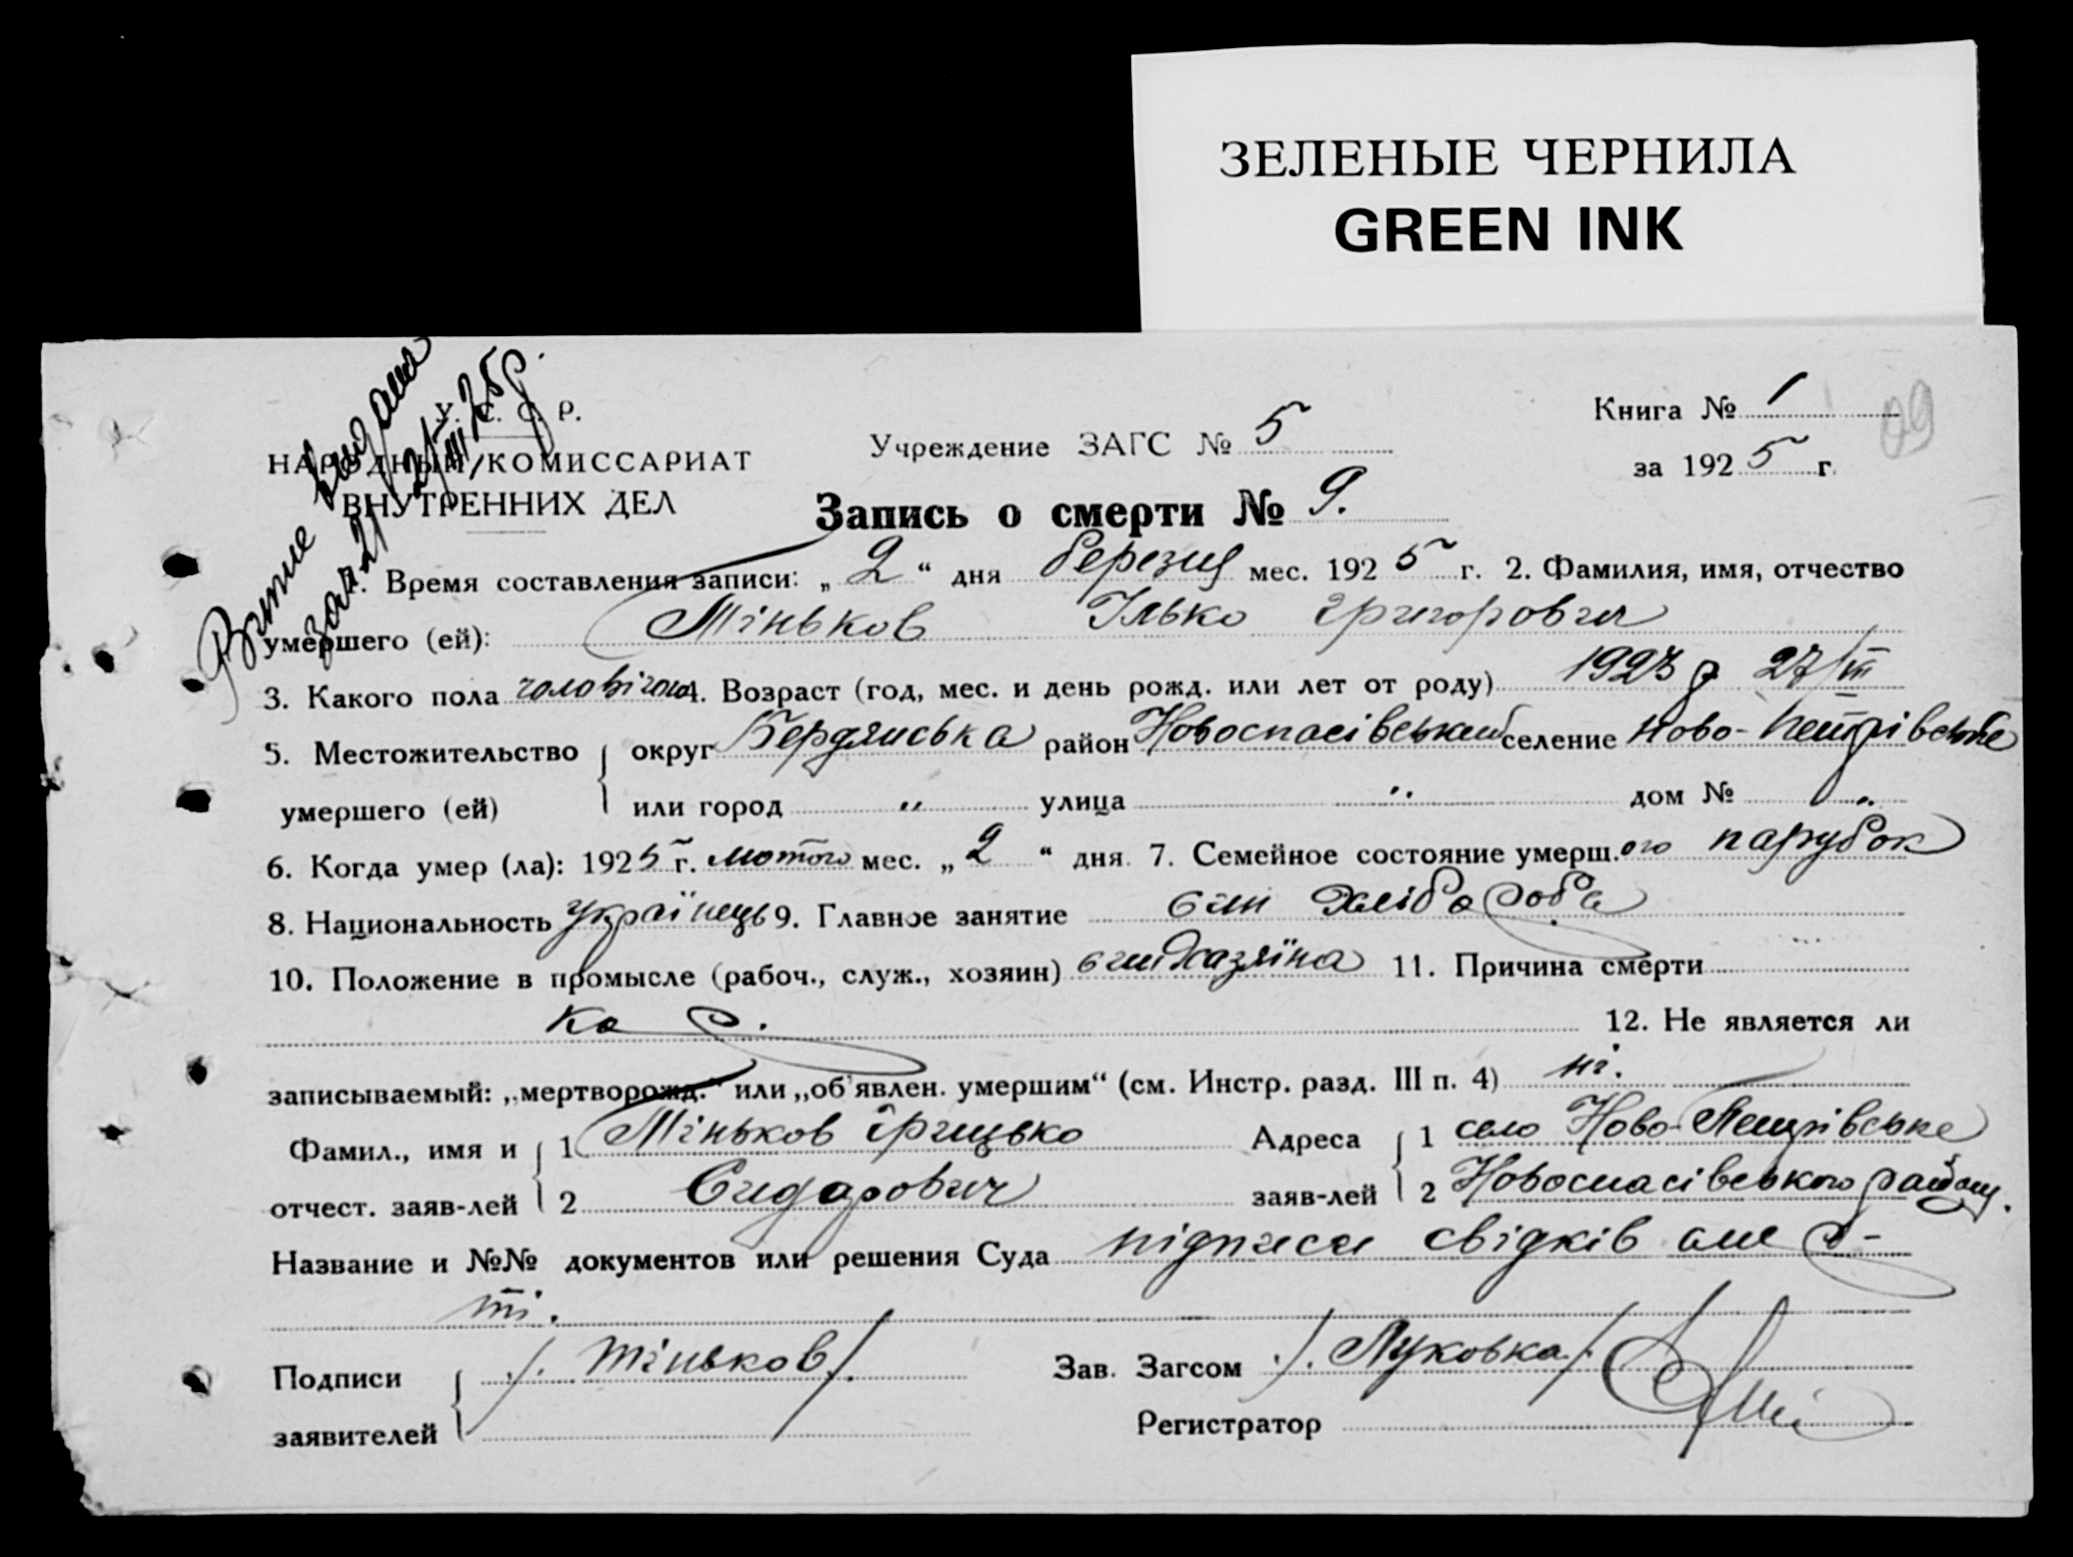 ЗЕЛЕНЫЕ ЧЕРНИЛА
GREEN INK
Витяг видано
за ч. 21 21/III 25 р.
У. С. С. Р.
НАРОДНЫЙ КОМИССАРИАТ
ВНУТРЕННИХ ДЕЛ
Учреждение ЗАГС № 5
Книга № 1
за 1925 г.
Запись о смерти № 9.
1. Время составления записи: „2“ дня березня мес. 1925 г. 2. Фамилия, имя, отчество
умершего (ей): Міньков Ілько Григорович
3. Какого пола чоловічого 4. Возраст (год, мес. и день рожд. или лет от роду) 1923 р 27/III
5. Местожительство округ Бердянська район Новоспасівський селение Ново-Петрівське
умершего (ей) или город " улица " дом № "
6. Когда умер (ла): 1925 г. лютого мес. „2“ дня. 7. Семейное состояние умерш.ого парубок
8. Национальность українець 9. Главное занятие син хлібороба
10. Положение в промысле (рабоч., служ., хозяин) син хазяїна 11. Причина смерти
кор. 12. Не является ли
записываемый: „мертворожд.“ или „об'явлен. умершим“ (см. Инстр. разд. III п. 4) ні.
Фамил., имя и 1 Міньков Грицько Адреса 1 село Ново-Петрівське
отчест. заяв-лей 2 Сидарович заяв-лей 2 Новоспасівського району.
Название и №№ документов или решения Суда підписи свідків
ті.
Подписи /. Міньков /. Зав. Загсом /. Луковка /.
заявителей Регистратор